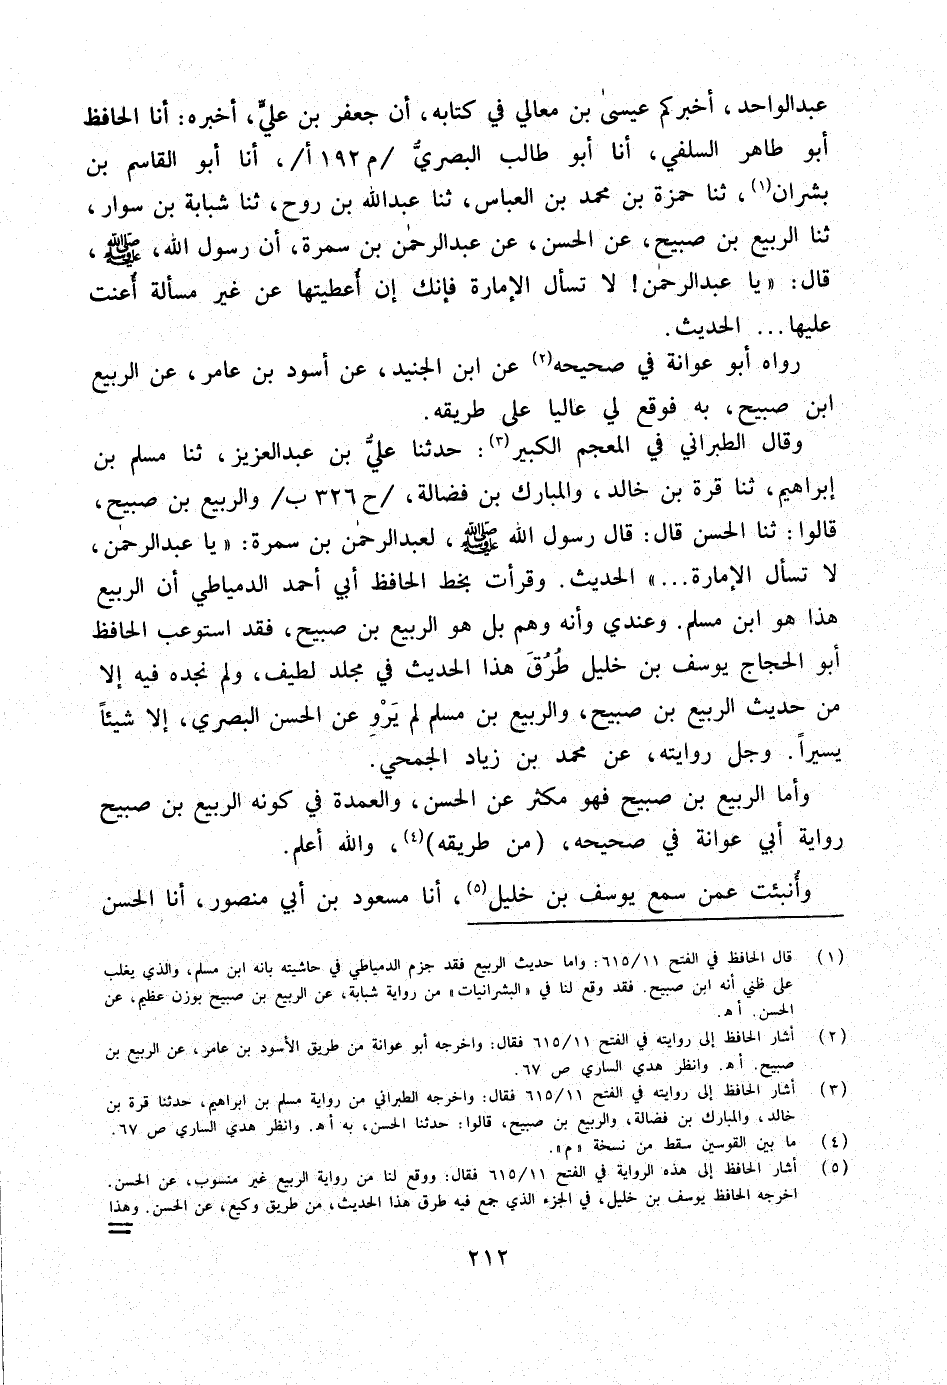 عبدالواحد، أخبركم عيسىٰ بن معالي في كتابه، أن جعفر بن عليٍّ، أخبره: أنا الحافظ
أبو طاهر السلفي، أنا أبو طالب البصريُّ /م ١٩٢ أ/، أنا أبو القاسم بن
بشران(١)، ثنا حمزة بن محمد بن العباس، ثنا عبدالله بن روح، ثنا شبابة بن سوار،
ثنا الربيع بن صبيح، عن الحسن، عن عبدالرحمٰن بن سمرة، أن رسول الله، ﷺ،
قال: «يا عبدالرحمٰن! لا تسأل الإمارة فإنك إن أُعطيتها عن غير مسألة أُعنت
عليها... الحديث.
رواه أبو عوانة في صحيحه(٢) عن ابن الجنيد، عن أسود بن عامر، عن الربيع
ابن صبيح، به فوقع لي عاليا على طريقه.
وقال الطبراني في المعجم الكبير(٣): حدثنا عليُّ بن عبدالعزيز، ثنا مسلم بن
إبراهيم، ثنا قرة بن خالد، والمبارك بن فضالة، /ح ٣٢٦ ب/ والربيع بن صبيح،
قالوا: ثنا الحسن قال: قال رسول الله ﷺ، لعبدالرحمٰن بن سمرة: «يا عبدالرحمٰن،
لا تسأل الإمارة...» الحديث. وقرأت بخط الحافظ أبي أحمد الدمياطي أن الربيع
هذا هو ابن مسلم. وعندي وأنه وهم بل هو الربيع بن صبيح، فقد استوعب الحافظ
أبو الحجاج يوسف بن خليل طُرُقَ هذا الحديث في مجلد لطيف، ولم نجده فيه إلا
من حديث الربيع بن صبيح، والربيع بن مسلم لم يَرْوِ عن الحسن البصري، إلا شيئاً
يسيراً. وجل روايته، عن محمد بن زياد الجمحي.
وأما الربيع بن صبيح فهو مكثر عن الحسن، والعمدة في كونه الربيع بن صبيح
رواية أبي عوانة في صحيحه، (من طريقه)(٤)، والله أعلم.
وأُنبئت عمن سمع يوسف بن خليل(٥)، أنا مسعود بن أبي منصور، أنا الحسن
(١) قال الحافظ في الفتح ٦١٥/١١: واما حديث الربيع فقد جزم الدمياطي في حاشيته بانه ابن مسلم، والذي يغلب
على ظني أنه ابن صبيح. فقد وقع لنا في «البشرانيات» من رواية شبابة، عن الربيع بن صبيح بوزن عظيم، عن
الحسن. أ هـ.
(٢) أشار الحافظ إلى روايته في الفتح ٦١٥/١١ فقال: واخرجه أبو عوانة من طريق الأسود بن عامر، عن الربيع بن
صبيح. أ هـ. وانظر هدي الساري ص ٦٧.
(٣) أشار الحافظ إلى روايته في الفتح ٦١٥/١١ فقال: واخرجه الطبراني من رواية مسلم بن ابراهيم، حدثنا قرة بن
خالد، والمبارك بن فضالة، والربيع بن صبيح، قالوا: حدثنا الحسن، به أ هـ. وانظر هدي الساري ص ٦٧.
(٤) ما بين القوسين سقط من نسخة «م».
(٥) أشار الحافظ إلى هذه الرواية في الفتح ٦١٥/١١ فقال: ووقع لنا من رواية الربيع غير منسوب، عن الحسن.
اخرجه الحافظ يوسف بن خليل، في الجزء الذي جمع فيه طرق هذا الحديث، من طريق وكيع، عن الحسن. وهذا
=
٢١٢